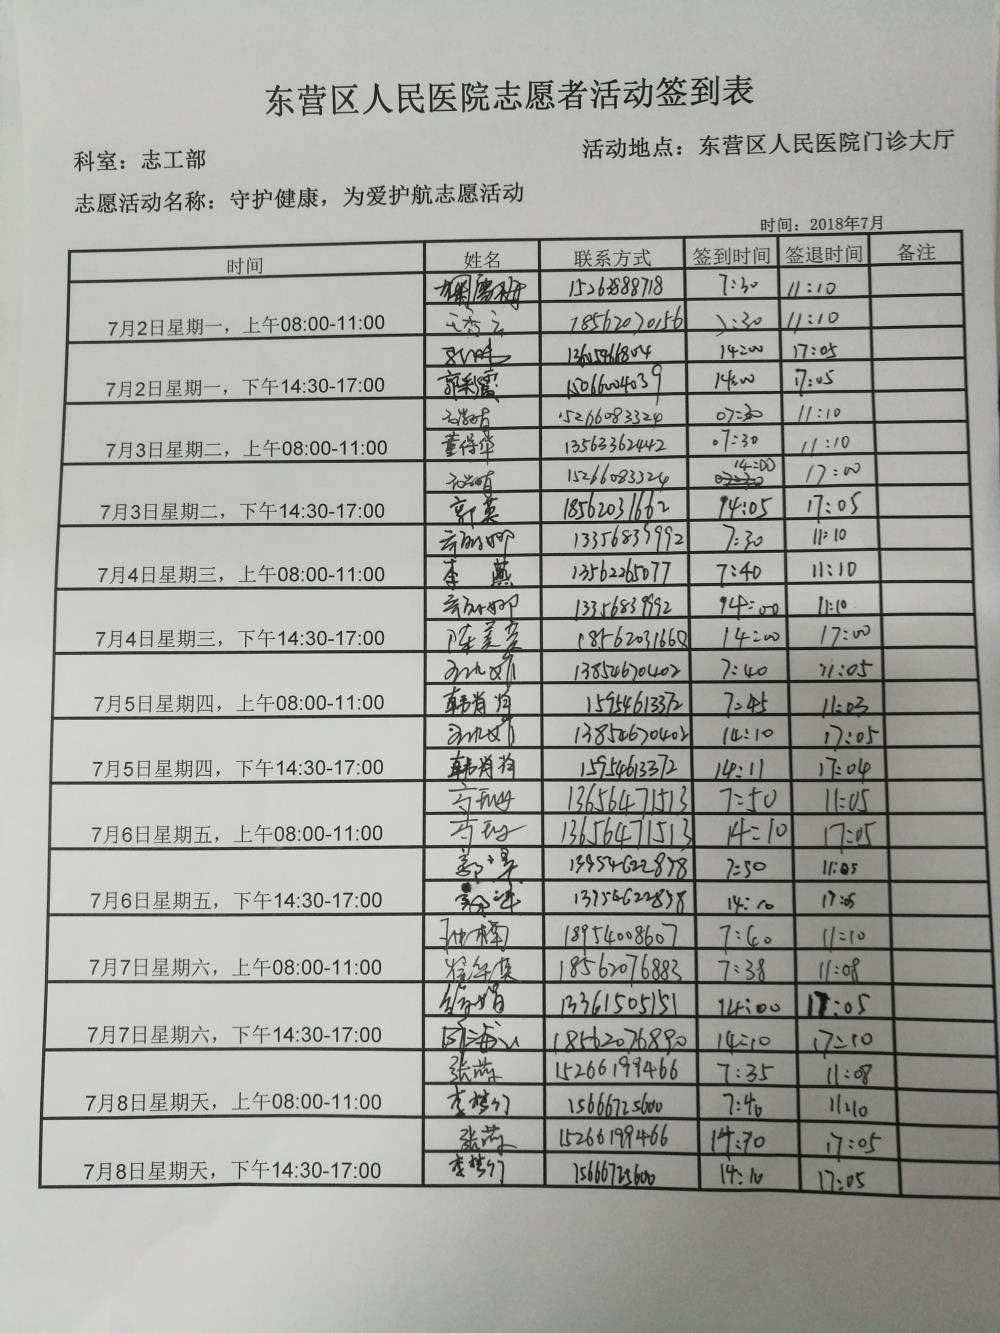 东营区人民医院志愿者活动签到表
科室：志工部 活动地点：东营区人民医院门诊大厅
志愿活动名称：守护健康，为爱护航志愿活动
时间：2018年7月
时间 姓名 联系方式 签到时间 签退时间 备注
7月2日星期一，上午08:00-11:00
15263888718 7:30 11:10
18562070156 7:30 11:10
7月2日星期一，下午14:30-17:00
14:00 17:05
郭彩霞 15066004039 14:00 17:05
7月3日星期二，上午08:00-11:00
15266083324 07:30 11:10
董保华 13563362442 07:30 11:10
7月3日星期二，下午14:30-17:00
15266083324 14:00 17:00
郭英 18562031662 14:05 17:05
7月4日星期三，上午08:00-11:00
13356839992 7:30 11:10
李燕 13562265077 7:40 11:10
7月4日星期三，下午14:30-17:00
13356839992 14:00 11:10
陈美 18562031668 14:00 17:00
7月5日星期四，上午08:00-11:00
13854670402 7:40 11:05
韩肖 15954613372 7:45 11:03
7月5日星期四，下午14:30-17:00
13854670402 14:10 17:05
韩肖 15954613372 14:11 17:04
7月6日星期五，上午08:00-11:00
13656471513 7:50 11:05
13656471513 14:10 17:05
7月6日星期五，下午14:30-17:00
13954622878 7:50 11:05
13954622878 14:10 17:05
7月7日星期六，上午08:00-11:00
楠 18954008607 7:40 11:10
18562076883 7:38 11:08
7月7日星期六，下午14:30-17:00
娟 13361505151 14:00 17:05
18562076890 14:10 17:10
7月8日星期天，上午08:00-11:00
张燕 15266199466 7:35 11:08
李梦行 15666725600 7:40 11:10
7月8日星期天，下午14:30-17:00
张燕 15266199466 17:05
李梦行 15666725600 14:10 17:05